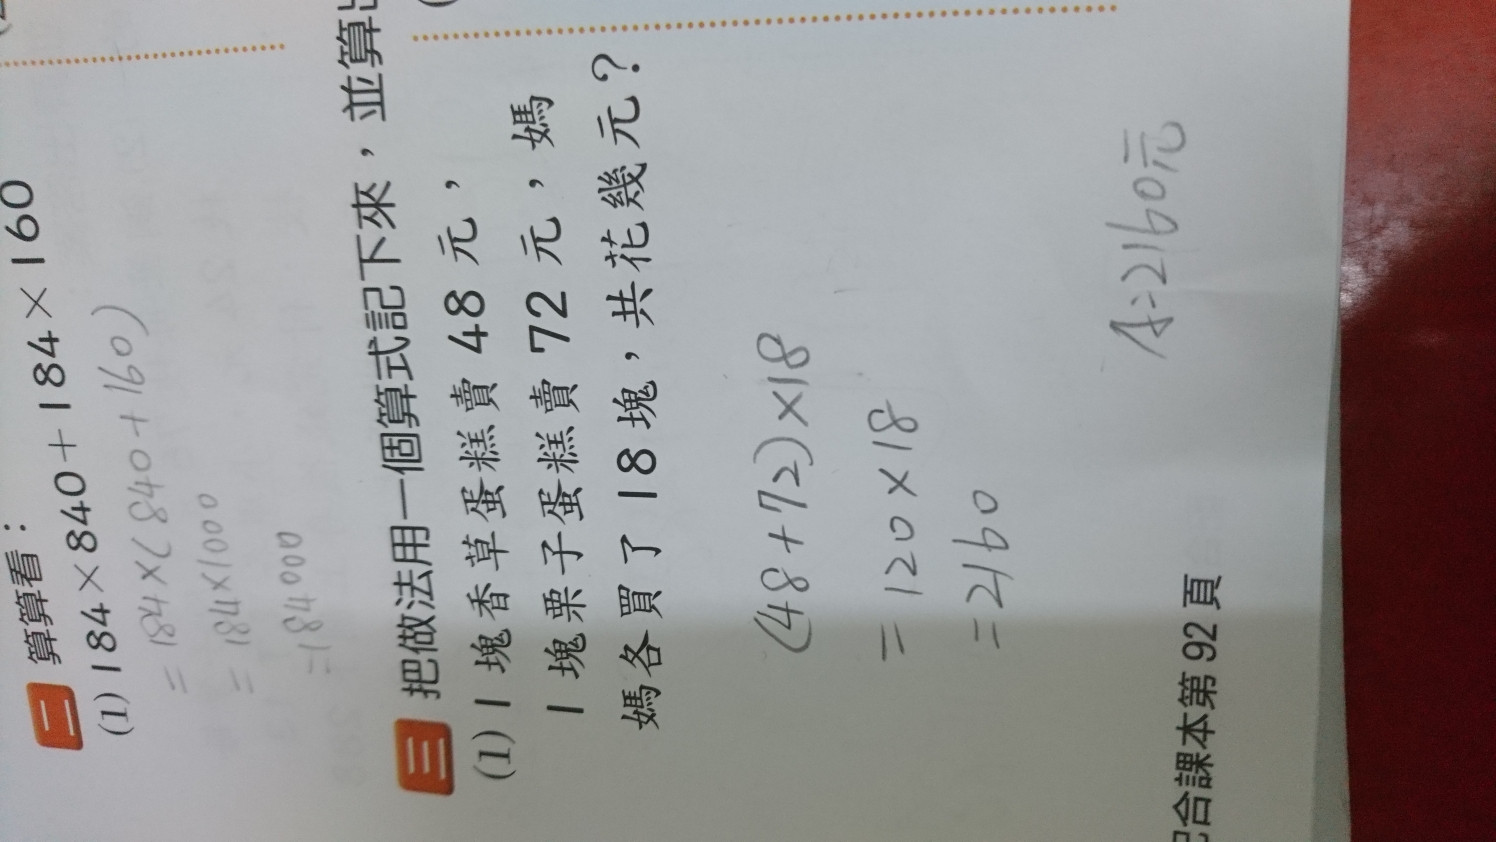 二 算算看：
(1) 184×840+184×160
=184×(840+160)
=184×1000
=184000
三 把做法用一個算式記下來，並算
(1) 1 塊香草蛋糕賣 48 元，
1 塊栗子蛋糕賣 72 元，媽
媽各買了 18 塊，共花幾元？
(48+72)×18
=120×18
=2160
A:2160元
合課本第 92 頁